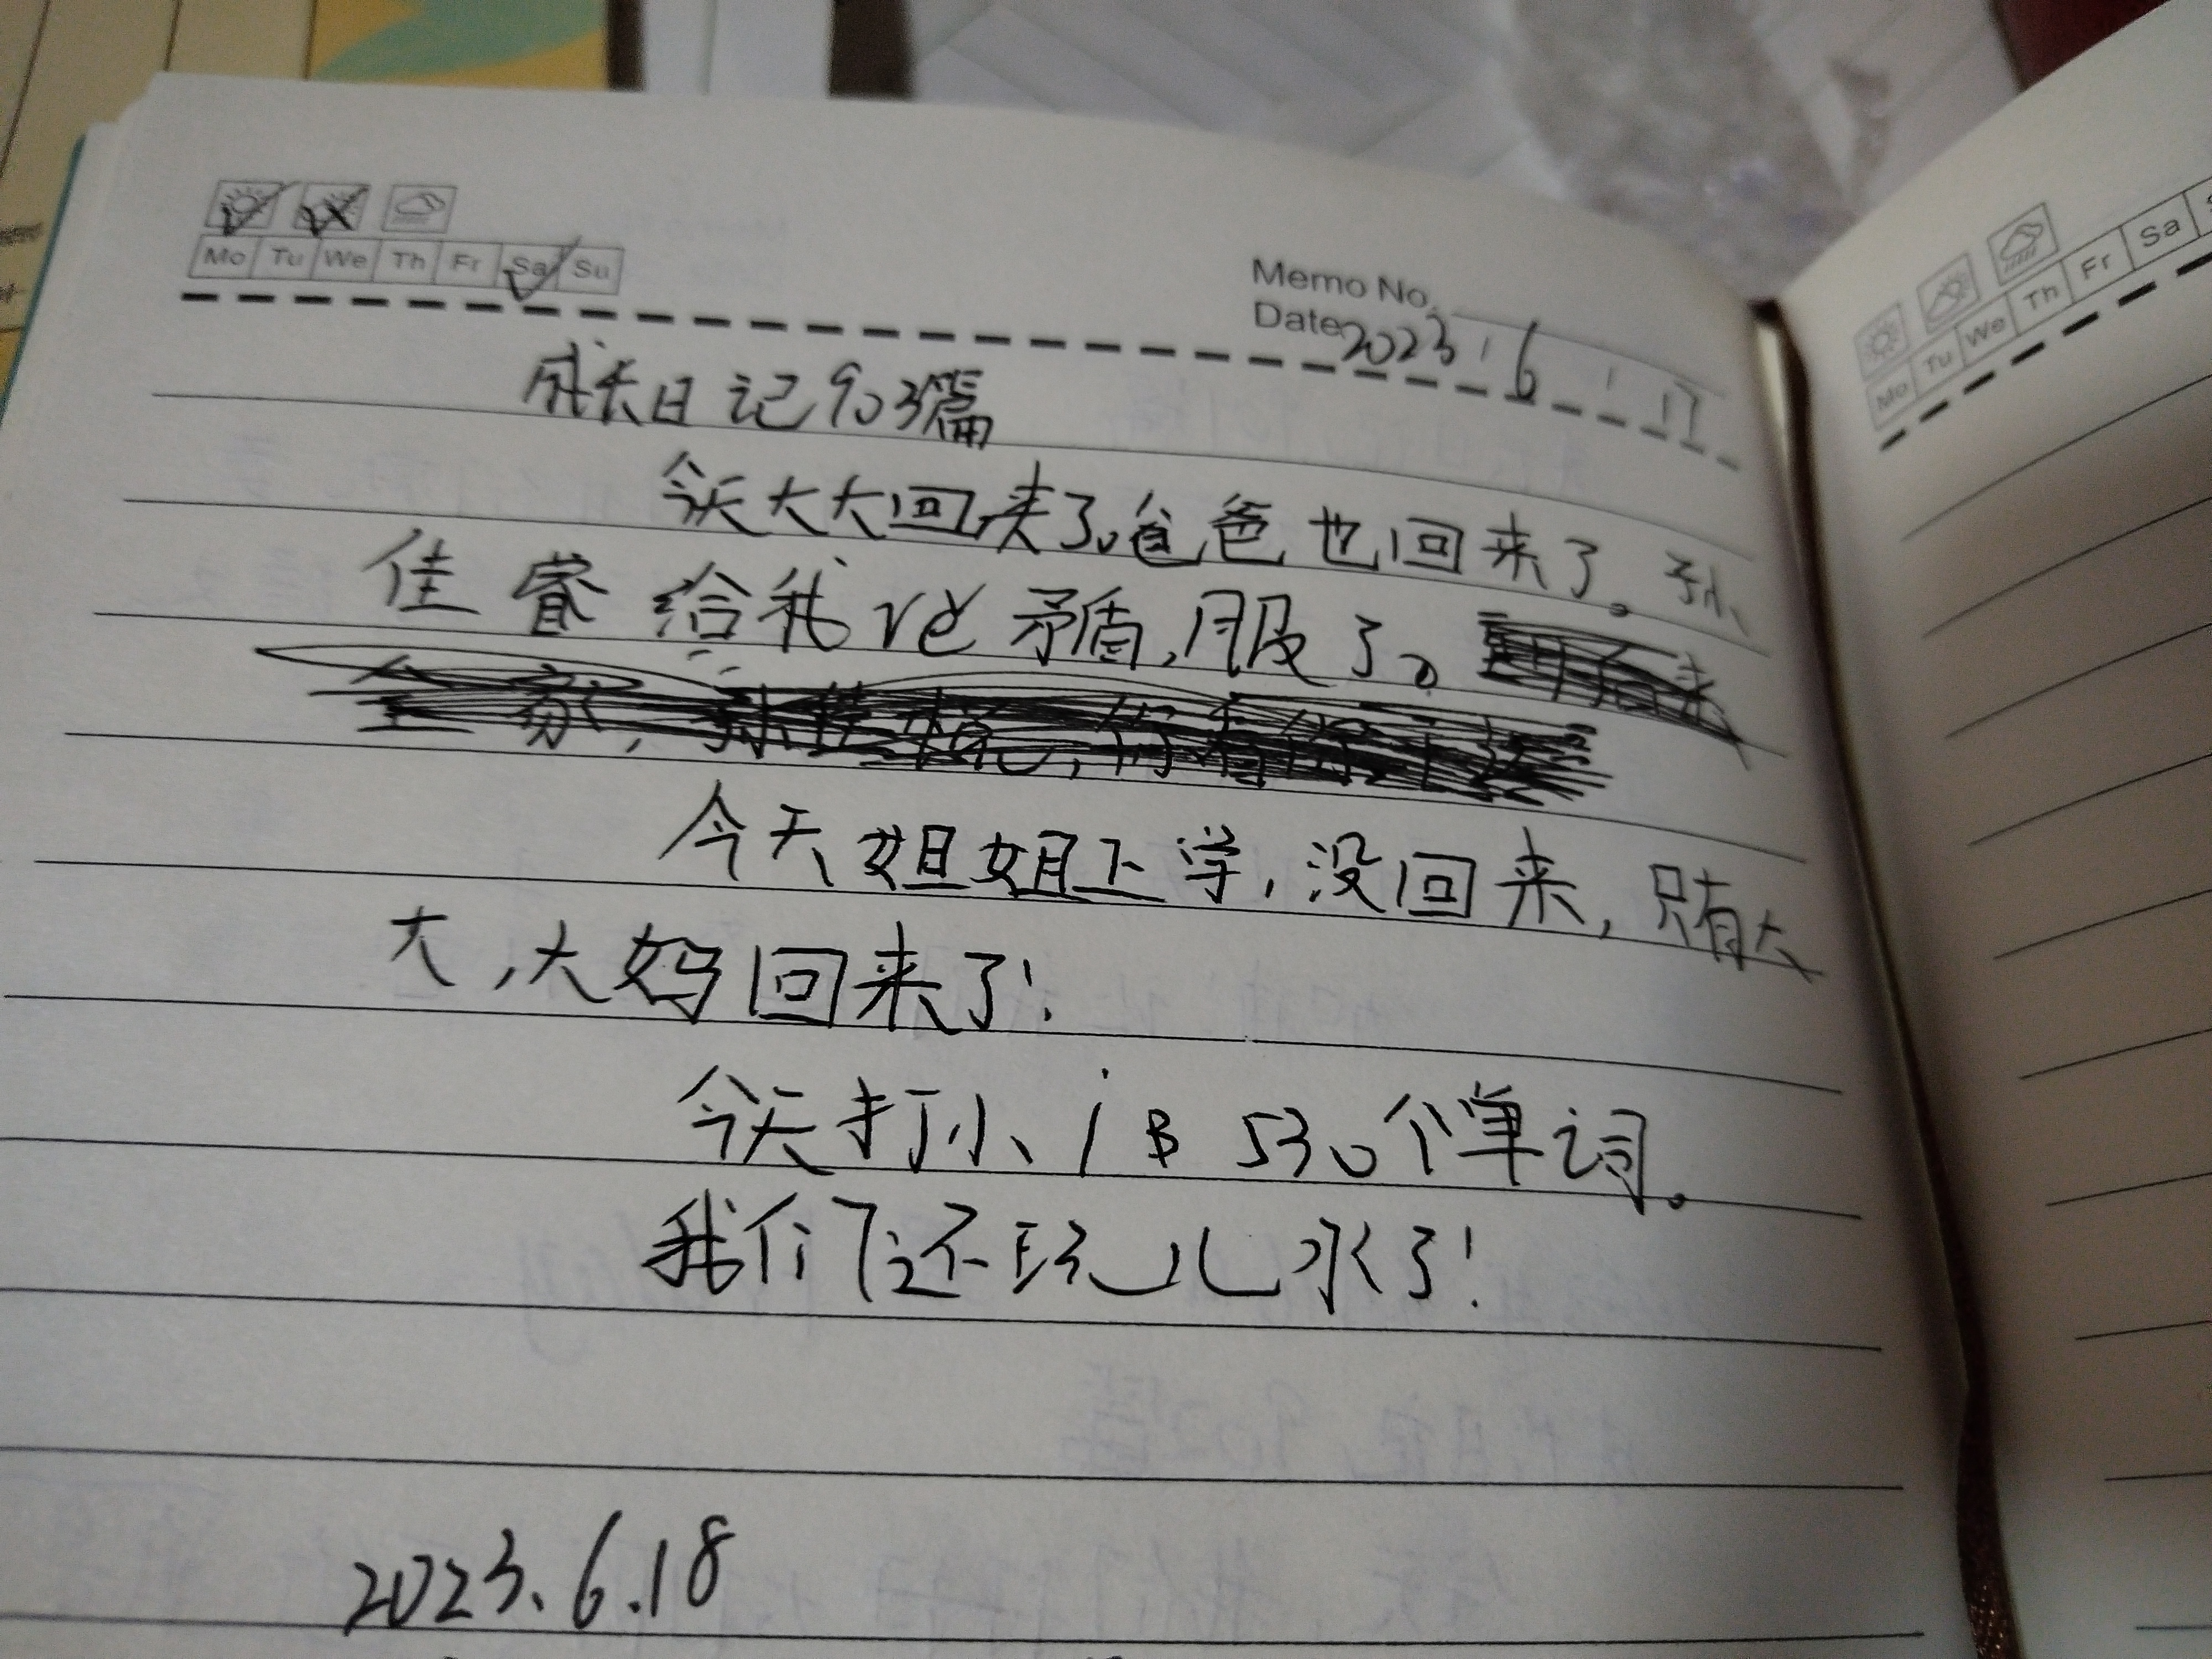 Mo Tu We Th Fr Sa Su
Memo No.
Date 2023.6.17
成长日记903篇
今天大大回来了,爸爸也回来了。孙
佳睿给我说矛盾,服了。
今天姐姐上学,没回来,只有大
大,大妈回来了!
今天打小 530个单词。
我们还玩儿水了!
2023.6.18
Mo Tu We Th Fr Sa